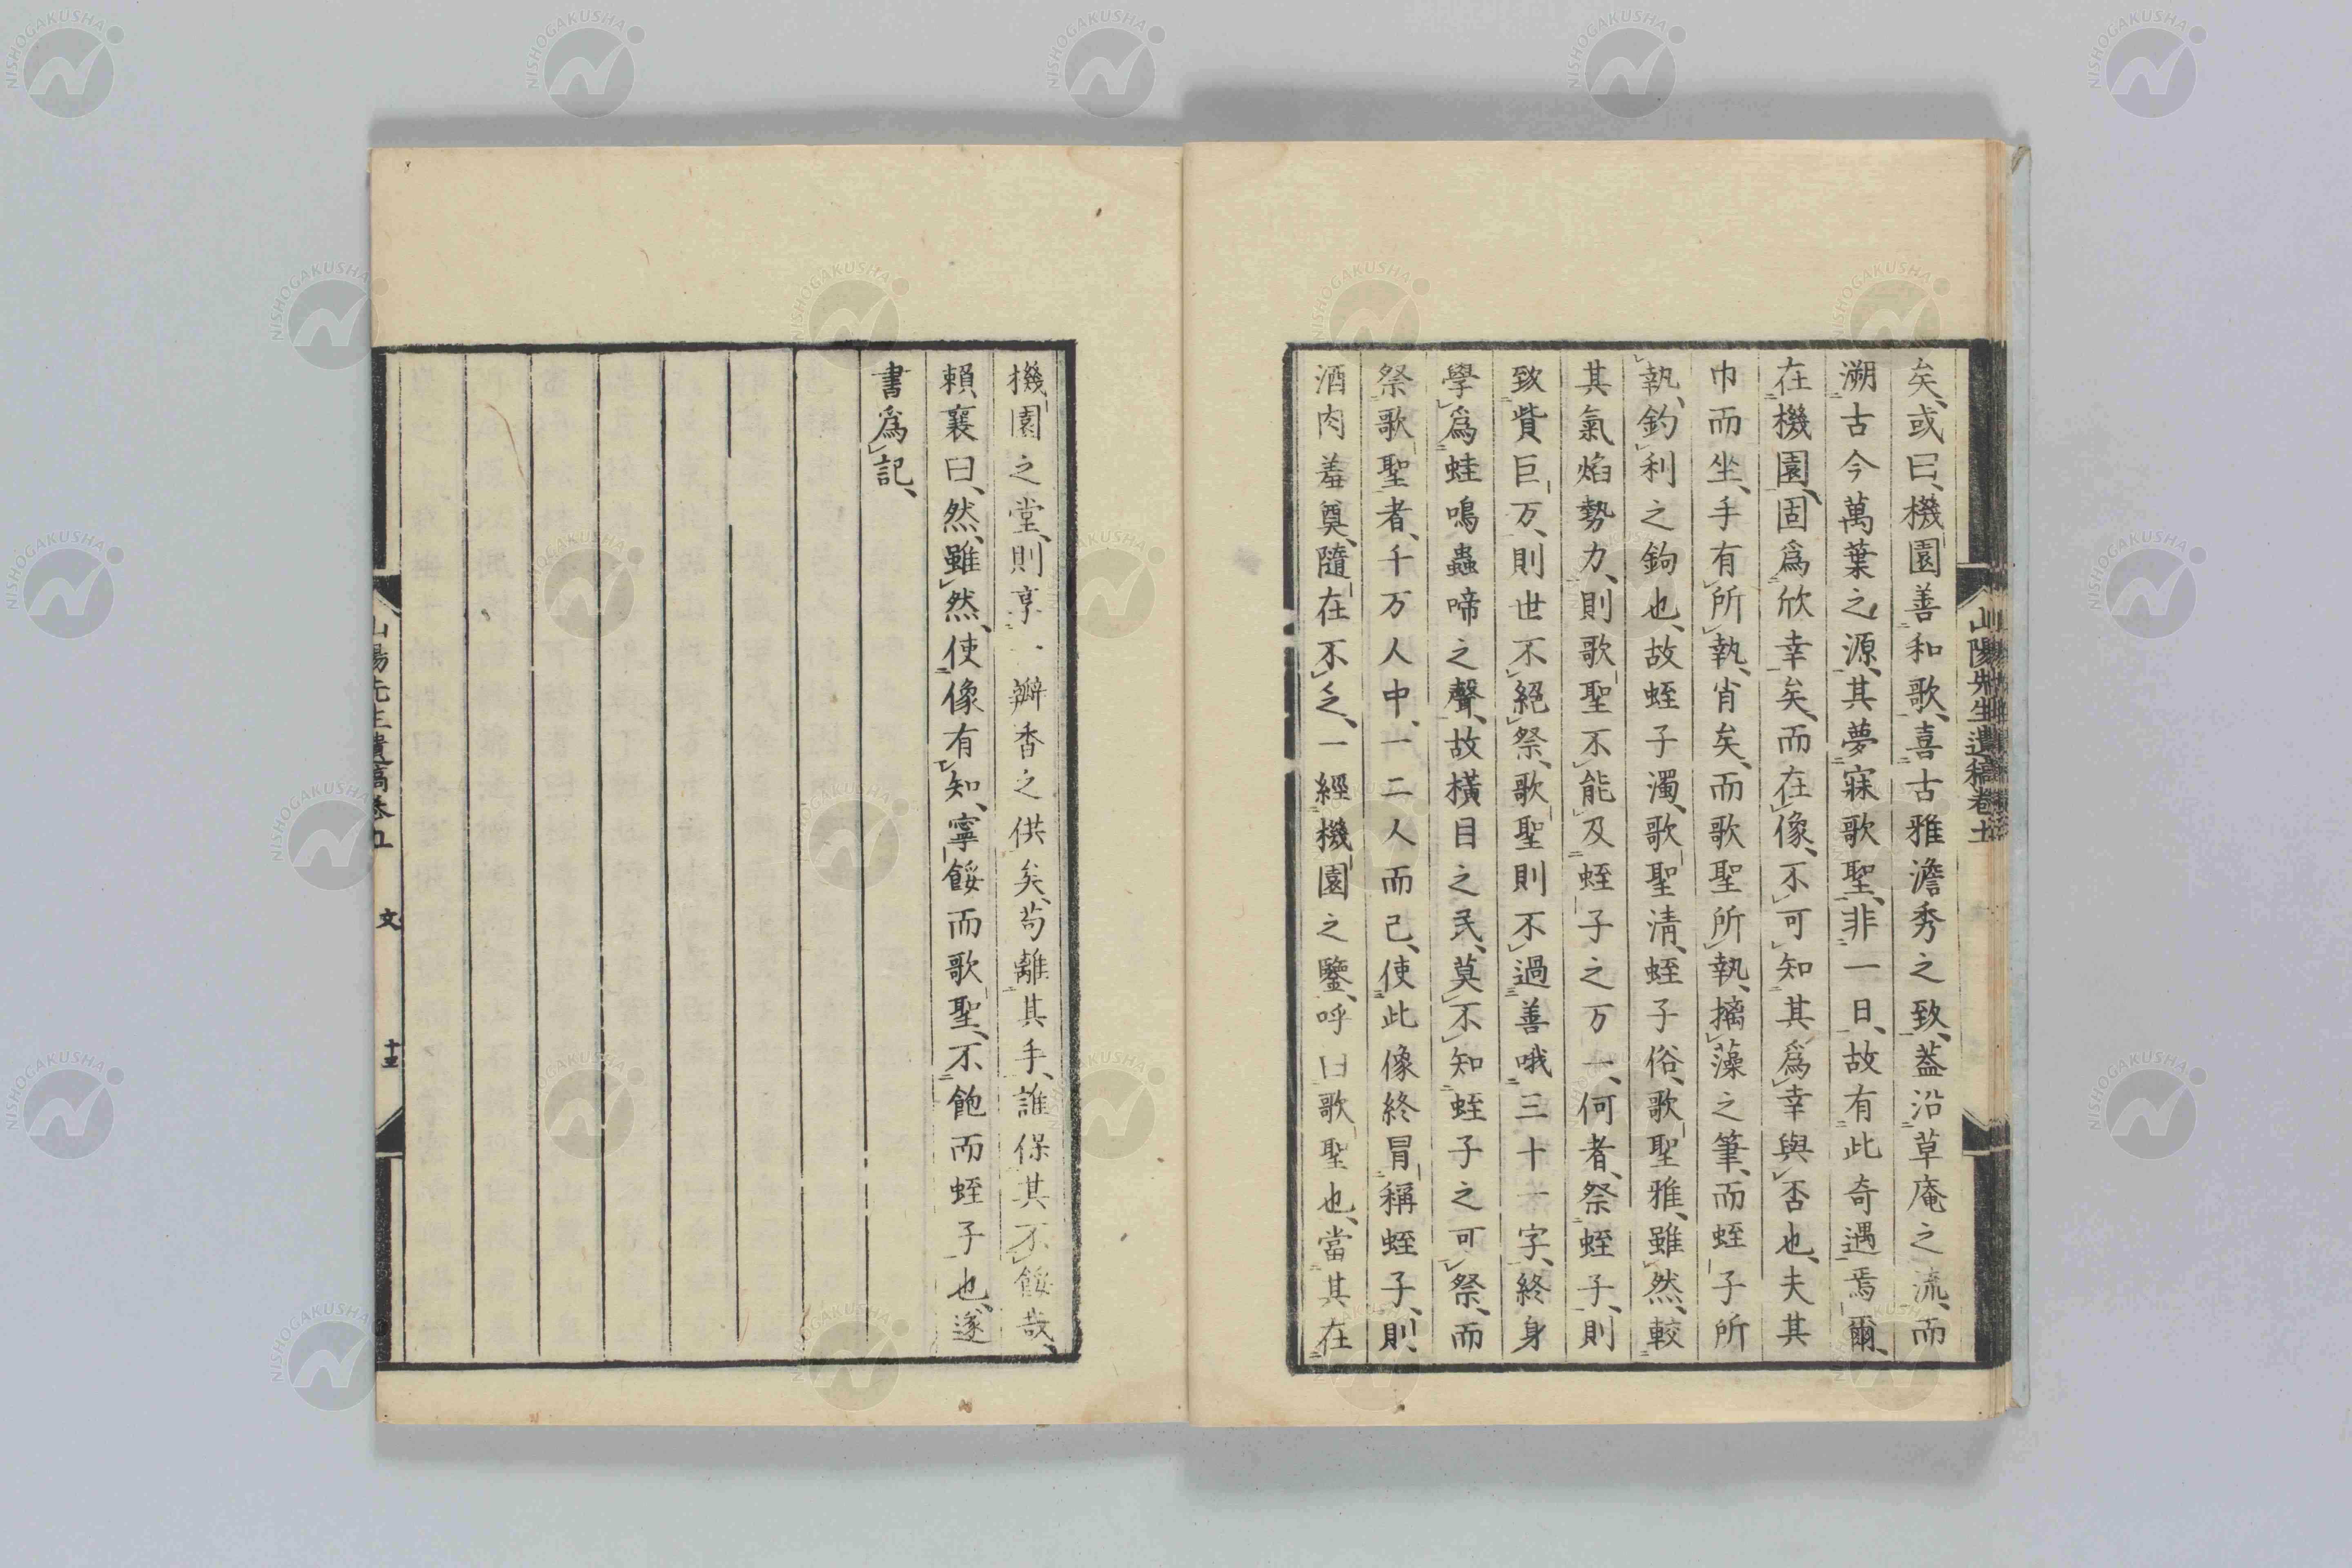 矣、或曰、機園善和歌、喜古雅澹秀之致、葢沿草庵之流、而
溯古今萬葉之源、其夢寐歌聖、非一日、故有此奇遇焉爾、
在機園、固爲欣幸矣、而在像、不可知其爲幸與否也、夫其
巾而坐、手有所執、肖矣、而歌聖所執、摛藻之筆、而蛭子所
執、釣利之鉤也、故蛭子濁、歌聖淸、蛭子俗、歌聖雅、雖然、較
其氣焰勢力、則歌聖不能及蛭子之万一、何者、祭蛭子、則
致貲巨万、則世不絕祭、歌聖則不過善哦三十一字、終身
學爲蛙鳴蟲啼之聲、故橫目之民、莫不知蛭子之可祭、而
祭歌聖者、千万人中、一二人而已、使此像終冒稱蛭子、則
酒肉羞奠、隨在不乏、一經機園之鑒、呼曰歌聖也、當其在
機園之堂、則享一瓣香之供矣、苟離其手、誰保其不餒哉、
賴襄曰、然、雖然、使像有知、寧餒而歌聖、不飽而蛭子也、遂
書爲記、
山陽先生遺稿卷五
文
十五
NISHOGAKUSHA